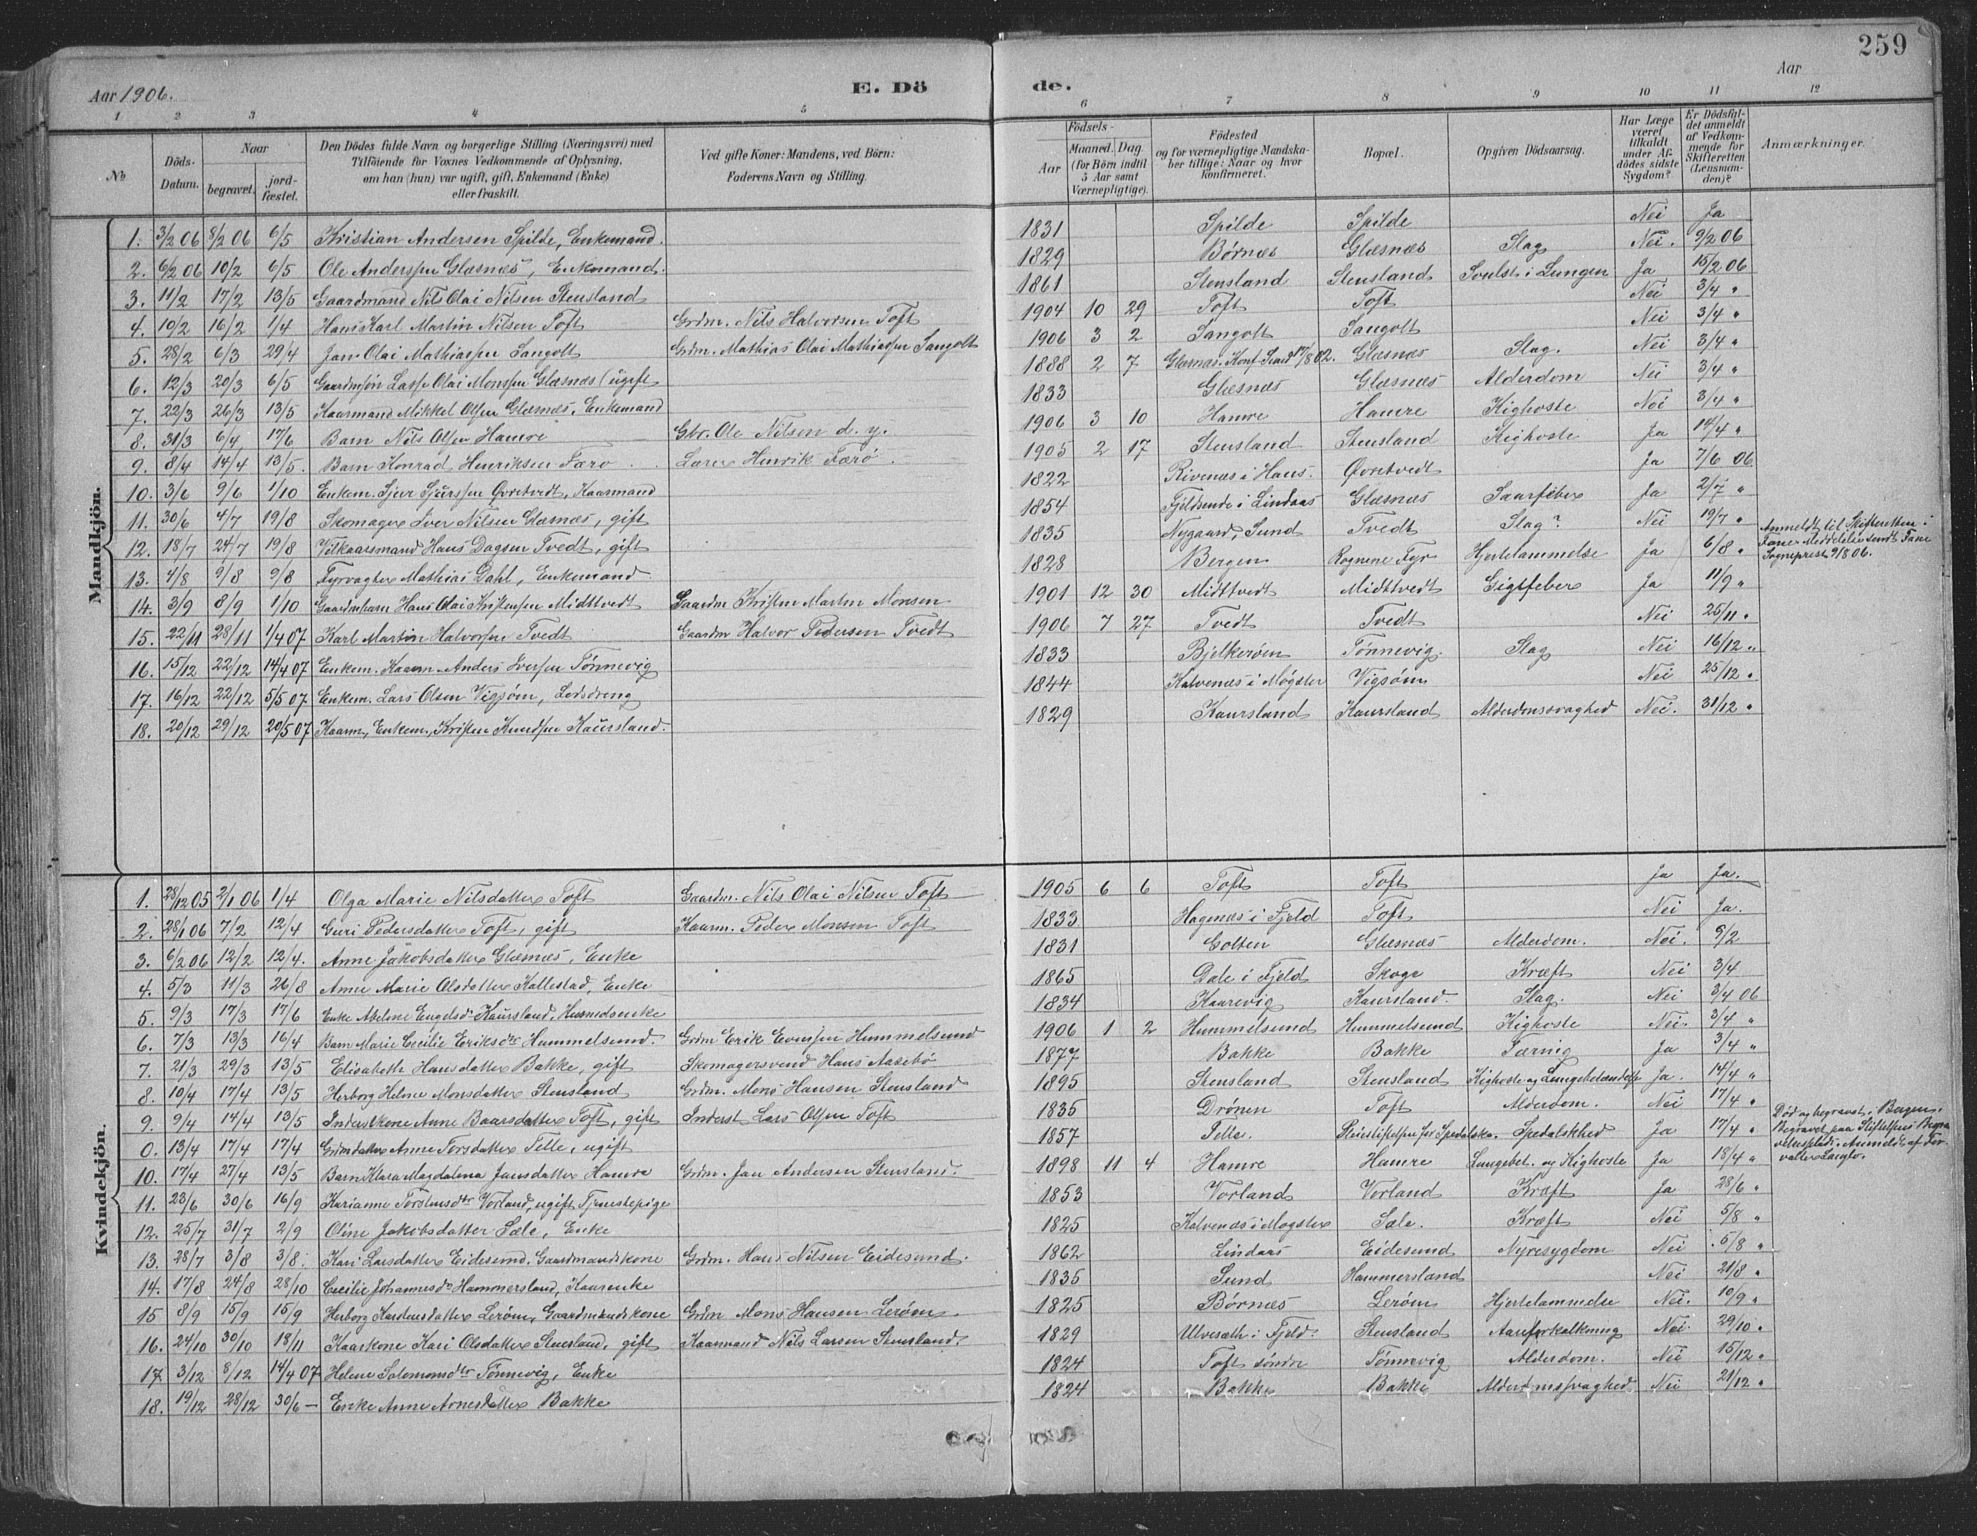 259
Aar 1906.
E. Döde.
Aar
1 2 3 4 5 6 7 8 9 10 11 12
No
Döds-Datum.
Naar
begravet.
jordfæstet.
Den Dödes fulde Navn og borgerlige Stilling (Næringsvei) med Tilföiende for Voxnes Vedkommende af Oplysning, om han (hun) var ugift, gift, Enkemand (Enke) eller fraskilt.
Ved gifte Koner: Mandens, ved Børn: Faderens Navn og Stilling.
Födsels-
Aar
Maaned. Dag.
(for Börn indtil 5 Aar samt Værnepligtige).
Födested og for værnepligtige Mandskaber tillige: Naar og hvor Konfirmeret.
Bopæl.
Opgiven Dödsaarsag.
Har Læge været tilkaldt under Afdödes sidste Sygdom?
Er Dödsfaldet anmeldt af Vedkommende for Skifteretten (Lensmanden)?
Anmærkninger.
Mandkjön.
1. 3/2 06 8/2 06 6/5 Kristian Andersen Spilde, Enkemand. 1831 Spilde Spilde Nei Ja
2. 6/2 06 10/2 6/5 Ole Anderssen Glæsnæs, Enkemand. 1829 Børnæs Glæsnæs Slag Nei. 9/2 06
3. 11/2 17/2 13/5 Gaardmand Nils Olai Nilsen Stensland 1861 Stensland Stensland Svulst i Lungen Ja 15/2 06
4. 10/2 16/2 1/4 Hans Karl Martin Nilsen Toft Grdm. Nils Halvorsen Toft 1904 10 29 Toft Toft Nei 3/4 "
5. 28/2 6/3 29/4 Jan Olai Mathiassen Sangolt Grdm. Mathias Olai Mathiassen Sangolt 1906 3 2 Sangolt Sangolt Nei 3/4 "
6. 12/3 20/3 6/5 Gaardmsøn Lasse Olai Monsen Glæsnæs (ugift 1888 2 7 Glæsnæs. Konf. Sund 17/8 02. Glæsnæs Slag. Nei 3/4 "
7. 22/3 26/3 13/5 Kaarmand Mikkel Olsen Glæsnæs, Enkemand 1833 Glæsnæs Glæsnæs Alderdom Nei 3/4 "
8. 31/3 6/4 17/6 Barn Nils Olsen Hamre Gbr. Ole Nilsen d. y. 1906 3 10 Hamre Hamre Kighoste Nei 3/4 "
9. 8/4 14/4 13/5. Barn Konrad Henriksen Færø Lærer Henrik Færø 1905 2 17 Stensland Stensland Kighoste Ja 19/4 "
10. 3/6 9/6 1/10 Enkem. Sjur Sjurssen Øvretvedt, Kaarmand 1822 Rivenæs i Haus. Øvretvedt Ja 7/6 06
11. 30/6 4/7 19/8 Skomager Iver Nilsen Glæsnæs, gift 1854 Fjeldsende i Lindaas Glæsnæs Saarfeber Ja 2/7 "
12. 18/7 24/7 19/8 Vilkaarsmand Hans Dagsen Tvedt, gift 1835 Nygaard, Sund Tvedt Slag? Nei 19/7 "
13. 4/8 9/8 9/8 Fyrvogter Mathias Dahl, Enkemand 1828 Bergen Rognene Fyr Hjertelammelse Ja 6/8 " Anmeldt til Skifteretten i Fane. Meddelelse sendt Fane Sognepræst 9/8 06.
14. 3/9 8/9 1/10 Gaardmbarn Hans Olai Kristensen Midttvedt Gaardm Kristen Martin Monsen 1901 12 30 Midttvedt Midttvedt Gigtfeber Ja 11/9 "
15. 22/11 28/11 1/4 07 Karl Martin Halvorsen Tvedt Gaardm Halvor Pedersen Tvedt 1906 7 27 Tvedt Tvedt Nei 25/11 "
16. 15/12 22/12 14/4 07 Enkem. Kaarm. Anders Iversen Tønnevig 1833 Bjelkerøen Tønnevig. Slag Nei 16/12 "
17. 16/12 22/12 5/5 07 Enkem. Lars Olsen Vigsøm, Lodsdreng 1844 Kalvenæs i Møgster Vigsøm Nei 25/12 "
18. 20/12 29/12 20/5 07 Kaarm, Enkem, Kristen Knudsen Kaursland. 1829 Kaursland Kaursland Alderdomssvaghed Nei. 31/12 "
Kvindekjön.
1. 28/12 05 2/1 06 1/4 Olga Marie Nilsdatter Toft Gaardm. Nils Olai Nilsen Toft 1905 6 6 Toft Toft Ja Ja.
2. 28/1 06 7/2 12/4 Guri Pedersdatter Toft, gift Kaarm. Peder Monsen Toft 1833 Hagenæs i Fjeld Toft Nei Ja.
3. 6/2 06 12/2 12/4. Anne Jakobsdatter Glæsnæs, Enke 1831 Golten Glæsnæs Alderdom. Nei. 9/2
4. 5/3 11/3 26/8 Anne Marie Olsdatter Kallestad, Enke 1865 Dale i Fjeld Skoge Kræft Nei 3/4
5. 9/3 17/3 17/6 Enke Abelone Engelsd. Kaursland, Husmandsenke 1834 Kaarevig Kaursland. Slag. Nei 3/4 06
6. 7/3 13/3 16/4 Barn Marie Cecilie Eriksdtr Hummelsund. Grdm Erik Evensen Hummelsund 1906 1 2 Hummelsund Hummelsund Kighoste Nei. 3/4 "
7. 21/3 29/3 13/5 Elisabeth Hansdatter Bakke, gift Skomagersvend Hans Aasebø 1877 Bakke Bakke Tæring Ja 3/4 "
8. 10/4 17/4 13/5 Herborg Helene Monsdatter Stensland Grdm. Mons Hansen Stensland 1895 Stensland Stensland Kighoste og Lungebetændelse Ja. 14/4 "
9. 9/4 14/4 13/5 Inderstkone Anne Baarsdatter Toft, gift Inderst Lars Olsen Toft 1835 Drönen Toft Alderdom. Nei 17/4 "
0. 13/4 17/4 17/4 Grdmdatter Anne Torsdatter Telle, ugift 1857 Telle. Pleiestiftelsen for Spedalske. Spedalskhed Ja 17/4 " Død og begravet i Bergen. Begravet paa Stiftelsens Begravelsesplads. Anmeldt af Forvalter Langlo.
10. 17/4 27/4 13/5 Barn Klara Magdalena Jansdatter Hamre Grdm. Jan Andersen Stensland. 1898 11 4 Hamre Hamre Lungebet. og Kighoste Ja 18/4 "
11. 23/6 30/6 16/9 Karianne Torstensdtr Vorland, ugift Tjenestepige 1853 Vorland Vorland Kræft Ja 28/6 "
12. 25/7 31/7 2/9 Oline Jakobsdatter Sæle, Enke 1825 Kalvenæs i Møgster Sæle. Kræft Nei 5/8 "
13. 28/7 3/8 3/8. Kari Larsdatter Eidesund, Gaardmandskone Grdm. Hans Nilsen Eidesund. 1862 Lindaas Eidesund Nyresygdom Nei 5/8 "
14. 17/8 24/8 28/10 Cecilie Johannesd. Hammersland, Kaarenke 1835 Sund Hammersland Nei 21/8 "
15 8/9 15/9 15/9 Herborg Haldensdatter Lerøen, Gaardmandskone Grdm Mons Hansen Lerøen 1825 Børnæs Lerøen Hjertelammelse Nei. 10/9 "
16. 24/10 30/10 18/11 Kaarkone Kari Olsdatter Stensland, gift Kaarmand Nils Larsen Stensland. 1829 Ulvesæth i Fjeld. Stensland Aareforkalkning Nei. 29/10 "
17. 3/12 8/12 14/4 07 Helene Salomonsdtr Tønnevig, Enke 1824 Toft søndre Tønnevig Alderdom. Nei 15/12 "
18. 19/12 28/12 30/6 — Enke Anne Arnesdatter Bakke 1824 Bakke Bakke Alderdomssvaghed Nei 21/12 "